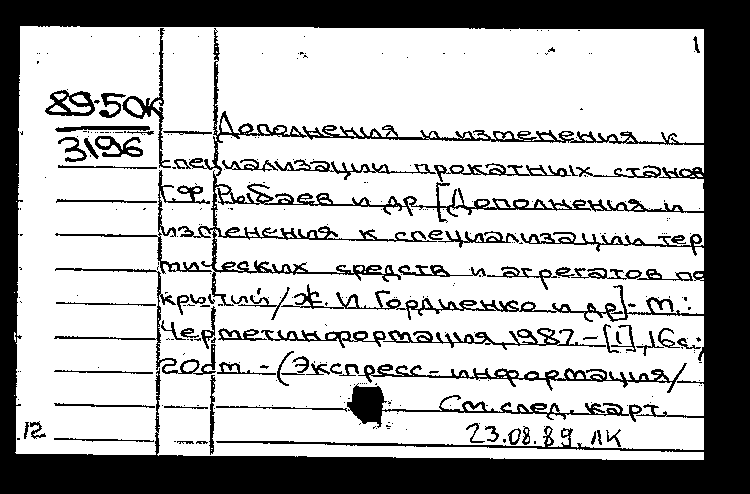 1
89-50к
3196
Дополнения и изменения к
специализации прокатных станов
Г.Ф. Рыбаев и др. [Дополнения и
изменения к специализации тер
мических средств и агрегатов по
крытий/Ж. И. Гордиенко и др]- М.:
Черметинформация, 1987.-[1], 16с.;
20см. -(Экспресс-информация/
См. след. карт.
12
23.08.89. ЛК